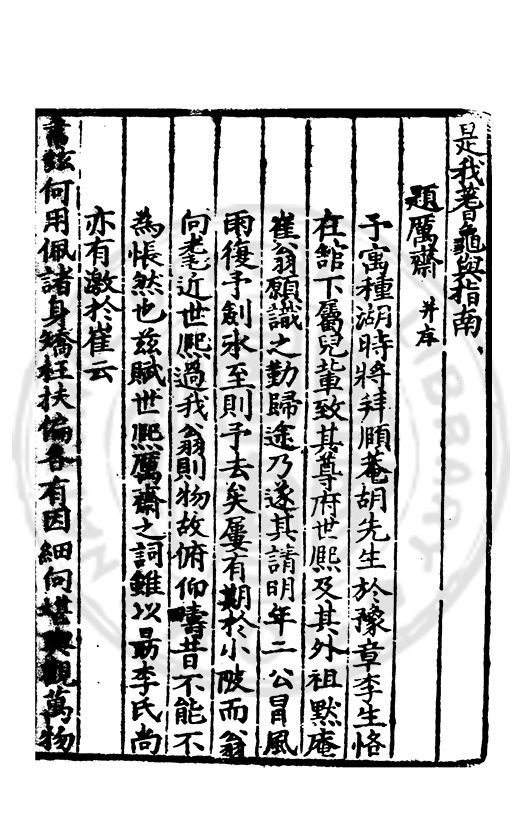 是我蓍龜與指南、
題厲齋 并序
予寓種湖時將拜頤菴胡先生於豫章李生恪
在舘下屬兒輩致其尊府世熈及其外祖默庵
崔翁願識之勤歸途乃遂其請明年二公冒風
雨復予劍水至則予去矣屢有期於小陂而翁
向耄近世熈過我翁則物故俯仰疇昔不能不
為悵然也玆賦世熈厲齋之詞雖以勗李氏尚
亦有激於崔云
韋弦何用佩諸身矯枉扶偏各有因細向堪輿觀萬物